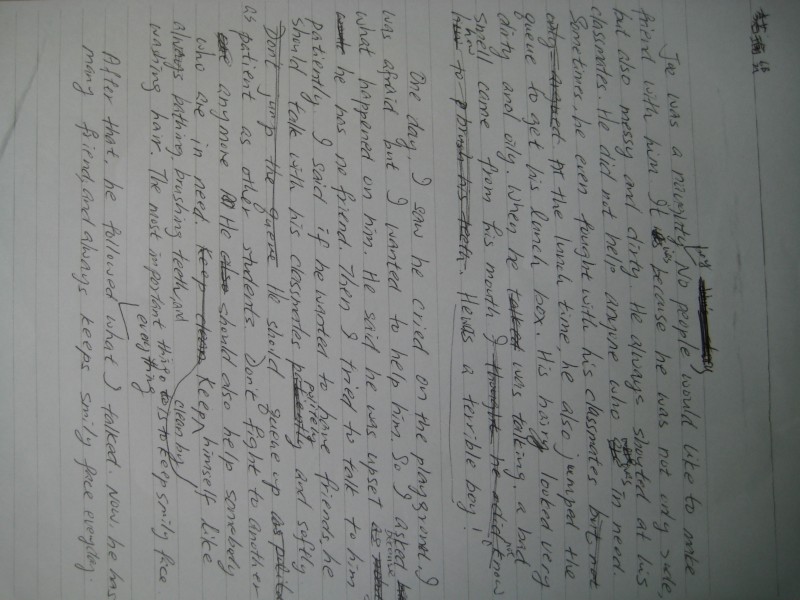 Joe was a naughty boy. No people would like to make
friend with him. It is because he was not only rude,
but also messy and dirty. He always shouted at his
classmates. He did not help anyone who was in need.
Sometimes, he even fought with his classmates but not
At the lunch time, he also jumped the
queue to get his lunch box. His hairy looked very
dirty and oily. When he talked was talking, a bad
smell came from his mouth I thought he did not know
how to brush his teeth. He was a terrible boy!
One day, I saw he cried on the playground. I
was afraid but I wanted to help him. So I asked
what happened on him. He said he was upset because
he has no friend. Then I tried to talk to him
patiently. I said if he wanted to have friends, he
should talk with his classmates politely and softly
Don't jump the queue He should queue up as patient
as patient as other students Don't fight to another
anymore He also should also help somebody
who are in need. Keep clean Keep himself clean by like
always bathing, brushing teeth, and
washing hair. The most important thing is to keep smily face
everything
After that, he followed what I talked. Now he has
many friend, and always keeps smily face everyday.